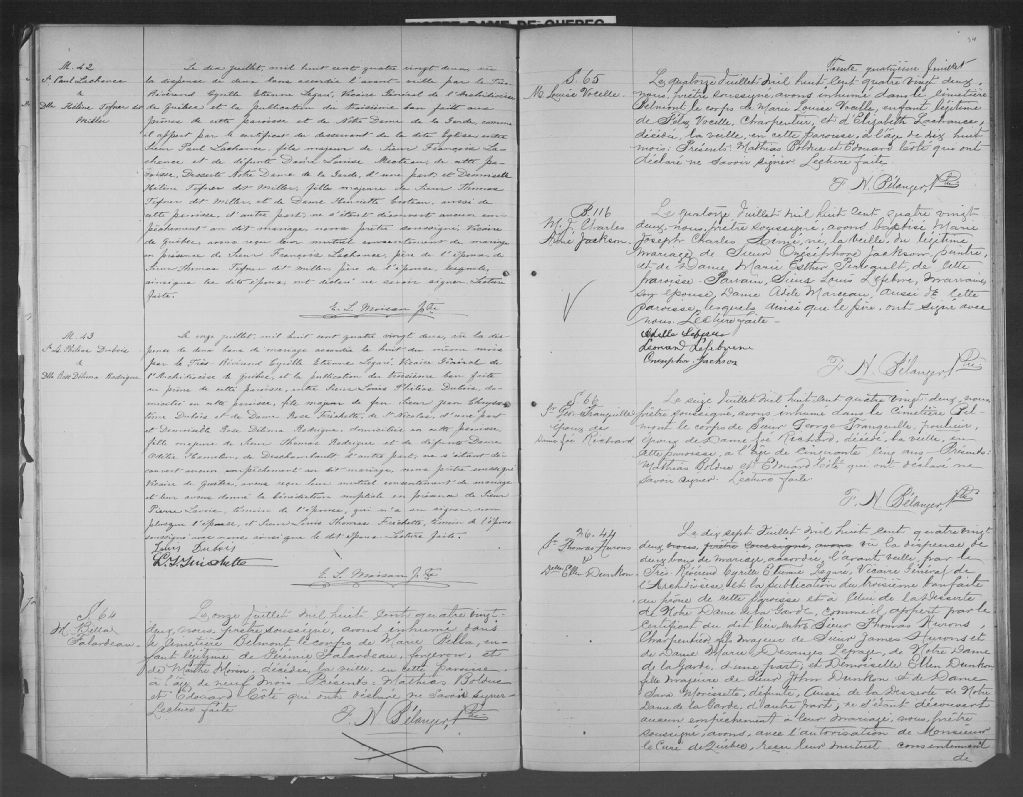 NOTRE DAME DE QUEBEC
M. 42
Sr Paul Lachance
&
Dlle Hélène Tafner dit
Miller
Le dix juillet, mil huit cent quatre vingt deux, vu
la dispense de deux bans accordée l'avant-veille par le Très
Révérend Cyrille Etienne Légaré, Vicaire Général de l'Archidiocèse
de Québec et la publication du troisième ban faite aux
prônes de cette paroisse et de Notre Dame de la Garde, comme
il appert par le certificat du desservant de la dite Eglise, entre
Sieur Paul Lachance, fils majeur de Sieur François La-
chance et de défunte Dame Louise de cette pa-
roisse, Desserte Notre Dame de la Garde, d'une part et Demoiselle
Hélène Tafner dit Miller, fille majeure de Sieur Thomas
Tafner dit Miller et de Dame Henriette aussi de
cette paroisse, d'autre part, ne s'étant découvert aucun em-
pêchement au dit mariage, nous prêtre soussigné, Vicaire
de Québec, avons reçu leur mutuel consentement de mariage
en présence de Sieur François Lachance, père de l'époux, de
Sieur Thomas Tafner dit Miller, père de l'épouse, lesquels,
ainsi que les dits époux, ont déclaré ne savoir signer. Lecture
faite.
E. L. Moisan Ptre
M. 43
Sr L. Phléas Dubois
&
Dlle Rose Délima Rodrigue
Le onze juillet, mil huit cent quatre vingt deux, vu la dis-
pense de deux bans de mariage accordée le huit du même mois
par le Très Révérend Cyrille Etienne Légaré, Vicaire Général de
l'Archidiocèse de Québec, et la publication du troisième ban faite
au prône de cette paroisse, entre Sieur Louis Phléas Dubois, do-
micilié en cette paroisse, fils majeur de feu Sieur Jean Chrysos-
tôme Dubois et de Dame Rose Fréchette, de St Nicolas, d'une part
et Demoiselle Rose Délima Rodrigue, domiciliée en cette paroisse,
fille majeure de Sieur Thomas Rodrigue et de défunte Dame
Odile de Deschambault d'autre part, ne s'étant dé-
couvert aucun empêchement au dit mariage, nous prêtre soussigné
Vicaire de Québec, avons reçu leur mutuel consentement de mariage
et leur avons donné la bénédiction nuptiale en présence de Sieur
Pierre Lavoie, témoin de l'époux, qui n'a su signer, non
plus que l'épouse, et Sieur Louis Thomas Fréchette, témoin de l'épouse
soussigné avec nous ainsi que le dit époux. Lecture faite.
Louis Dubois
L. T. Fréchette
E. L. Moisan Ptre
S. 64
M. Bella
Falardeau
Le onze Juillet Mil huit cent quatre vingt-
deux, nous, prêtre soussigné, avons inhumé dans
le cimetière Belmont le corps de Marie Bella, en-
fant légitime de Jérémie Falardeau, forgeron, et
de Marthe Morin, décédée la veille, en cette paroisse,
à l'âge de neuf mois. Présents: Mathias Bolduc
et Edouard Côté qui ont déclaré ne savoir signer.
Lecture faite
F. H. Bélanger, Ptre
Trente quatrième feuillet
S. 65
M. Louise Vocelle
Le quatorze Juillet Mil huit Cent quatre vingt deux,
nous, prêtre soussigné, avons inhumé dans le cimetière
Belmont le corps de Marie Louise Vocelle, enfant légitime
de Félix Vocelle, Charpentier, et d'Elizabeth Lachance,
décédée, la veille, en cette paroisse, à l'âge de dix huit
mois. Présents: Mathias Bolduc et Edouard Côté qui ont
déclaré ne savoir signer. Lecture faite
F. H. Bélanger, Ptre
B. 116
M. J. Charles
Aimé Jackson
Le quatorze Juillet Mil huit Cent, quatre vingt
deux, nous, prêtre soussigné, avons baptisé Marie
Joseph Charles Aimé, né, la veille, du légitime
mariage de Sieur Onésiphore Jackson, peintre,
et de Dame Marie Esther de cette
paroisse. Parrain, Sieur Louis Lefebvre, Marraine,
son épouse, Dame Adèle Marceau, aussi de cette
paroisse, lesquels ainsi que le père, ont signé avec
nous. Lecture faite.
Leonard Lefebvre
Onesiphor Jackson
F. H. Bélanger, Ptre
S. 66
Sr Geo. Tranquille
Epoux de
Dame Joé Richard
Le seize Juillet Mil huit cent quatre vingt deux, nous
prêtre soussigné, avons inhumé dans le Cimetière Bel-
mont le corps de Sieur George Tranquille,
Epoux de Dame Joé Richard, décédé, la veille, en
cette paroisse, à l'âge de cinquante cinq ans. Présents:
Mathias Bolduc et Edouard Côté qui ont déclaré ne
savoir signer. Lecture faite
F. H. Bélanger, Ptre
M. 44
Sr Thomas Hurons
&
Delle Ellen Dunkon
Le dix sept Juillet Mil huit Cent quatre vingt
deux, nous, prêtre soussigné, avons vu la dispense de
deux bans de mariage, accordée, l'avant veille par le
Très Révérend Cyrille Etienne Légaré, Vicaire Général de
l'Archidiocèse et la publication du troisième ban faite
au prône de cette paroisse et à celui de la desserte
de Notre Dame de la Garde, comme il appert par le
Certificat du dit lieu, entre Sieur Thomas Hurons,
Charpentier, fils majeur de Sieur James Hurons et
de Dame Marie Desanges Lepage, de Notre Dame
de la Garde, d'une part; et Demoiselle Ellen Dunkon
fille majeure de Sieur John Dunkon et de Dame
Sara Morissette, défunte, aussi de la Desserte de Notre
Dame de la Garde, d'autre part; ne s'étant découvert
aucun empêchement à leur mariage, nous, prêtre
soussigné, avons, avec l'autorisation de Monsieur
le Curé de Québec, reçu leur mutuel consentement
de